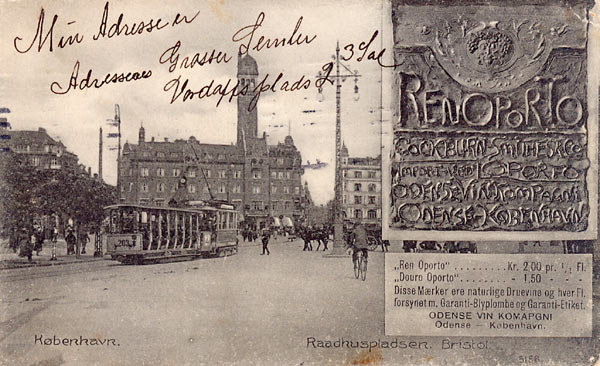 Min Adresse er
Adresseres Grosser Semler
Vordaffsplads 2 3 Sal
RENOPORTO
COCKBURN SMITHES & CO
IMPORT AF VIN OPORTO
ODENSE VIN KOMPAGNI
ODENSE - KØBENHAVN
„Ren Oporto“ ........... Kr. 2,00 pr. 1/1 Fl.
„Douro Oporto“ ......... - 1,50 - -
Disse Mærker ere naturlige Druevine og hver Fl.
forsynet m. Garanti-Blyplombe og Garanti-Etiket.
ODENSE VIN KOMAPGNI
Odense — København.
203
København.
Raadhuspladsen. Bristol.
5156